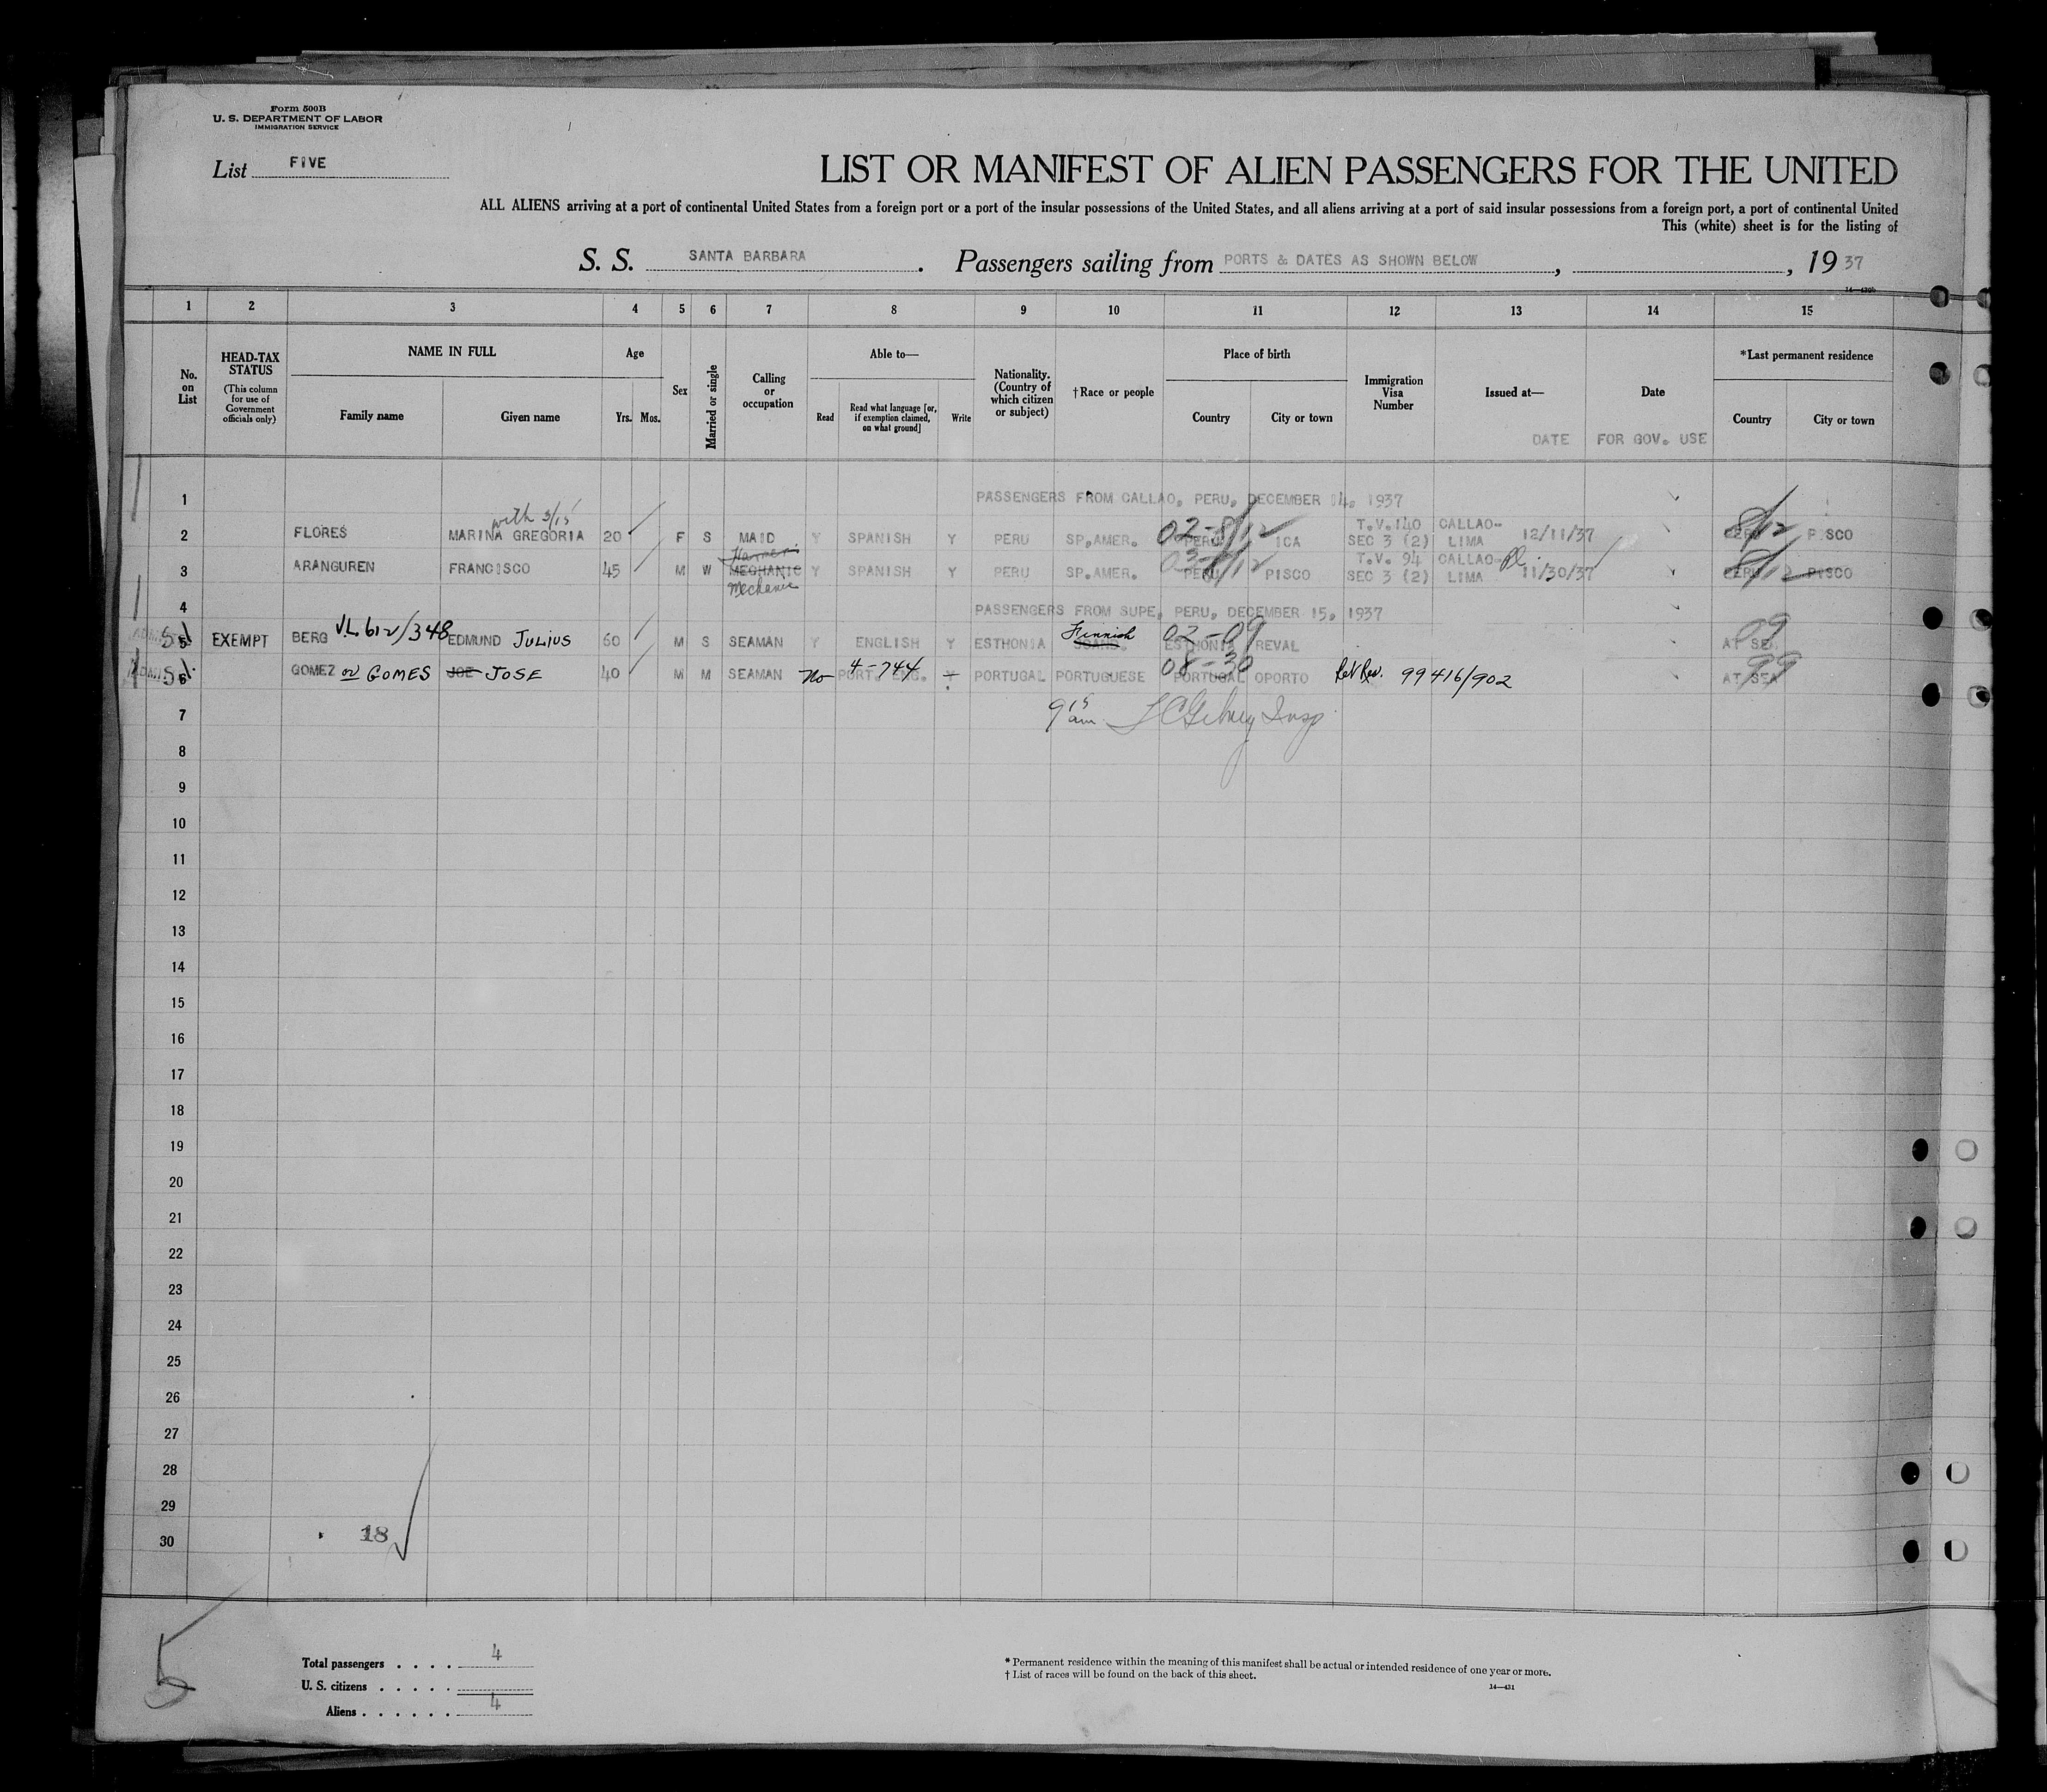 Form 500B
U. S. DEPARTMENT OF LABOR
IMMIGRATION SERVICE
List FIVE
LIST OR MANIFEST OF ALIEN PASSENGERS FOR THE UNITED
ALL ALIENS arriving at a port of continental United States from a foreign port or a port of the insular possessions of the United States, and all aliens arriving at a port of said insular possessions from a foreign port, a port of continental United
This (white) sheet is for the listing of
S. S. SANTA BARBARA. Passengers sailing from PORTS & DATES AS SHOWN BELOW, , 19 37
1 2 3 4 5 6 7 8 9 10 11 12 13 14 15
No. on List
HEAD-TAX STATUS (This column for use of Government officials only)
NAME IN FULL
Family name Given name
Age
Yrs. Mos.
Sex
Married or single
Calling or occupation
Able to—
Read Read what language [or, if exemption claimed, on what ground] Write
Nationality. (Country of which citizen or subject)
†Race or people
Place of birth
Country City or town
Immigration Visa Number
Issued at—
DATE
Date
FOR GOV. USE
*Last permanent residence
Country City or town
1 PASSENGERS FROM CALLAO, PERU, DECEMBER 14, 1937
with 3/15
02-8/12
2 FLORES MARINA GREGORIA 20 F S MAID Y SPANISH Y PERU SP.AMER. PERU ICA T.V.140 SEC 3 (2) CALLAO-LIMA 12/11/37 PERU 8/12 PISCO
03-8/12
3 ARANGUREN FRANCISCO 45 M W MECHANIC Y SPANISH Y PERU SP.AMER. PERU PISCO T.V. 94 SEC 3 (2) CALLAO-LIMA 11/30/37 PERU 8/12 PISCO
Mechanic
4 PASSENGERS FROM SUPE, PERU, DECEMBER 15, 1937
5 EXEMPT BERG V.L. 612/348 EDMUND JULIUS 60 M S SEAMAN Y ENGLISH Y ESTHONIA SCAND. Finnish 02-09 ESTHONIA REVAL AT SEA 09
6 GOMEZ or GOMES JOE JOSE 40 M M SEAMAN No PORT. ENG. 4-744 Y PORTUGAL PORTUGUESE 08-30 PORTUGAL OPORTO 99416/902 AT SEA 99
7 9 15 am
8
9
10
11
12
13
14
15
16
17
18
19
20
21
22
23
24
25
26
27
28
29
30
18
5
Total passengers . . . . 4
U. S. citizens . . . . .
Aliens . . . . . . 4
* Permanent residence within the meaning of this manifest shall be actual or intended residence of one year or more.
† List of races will be found on the back of this sheet.
14—431